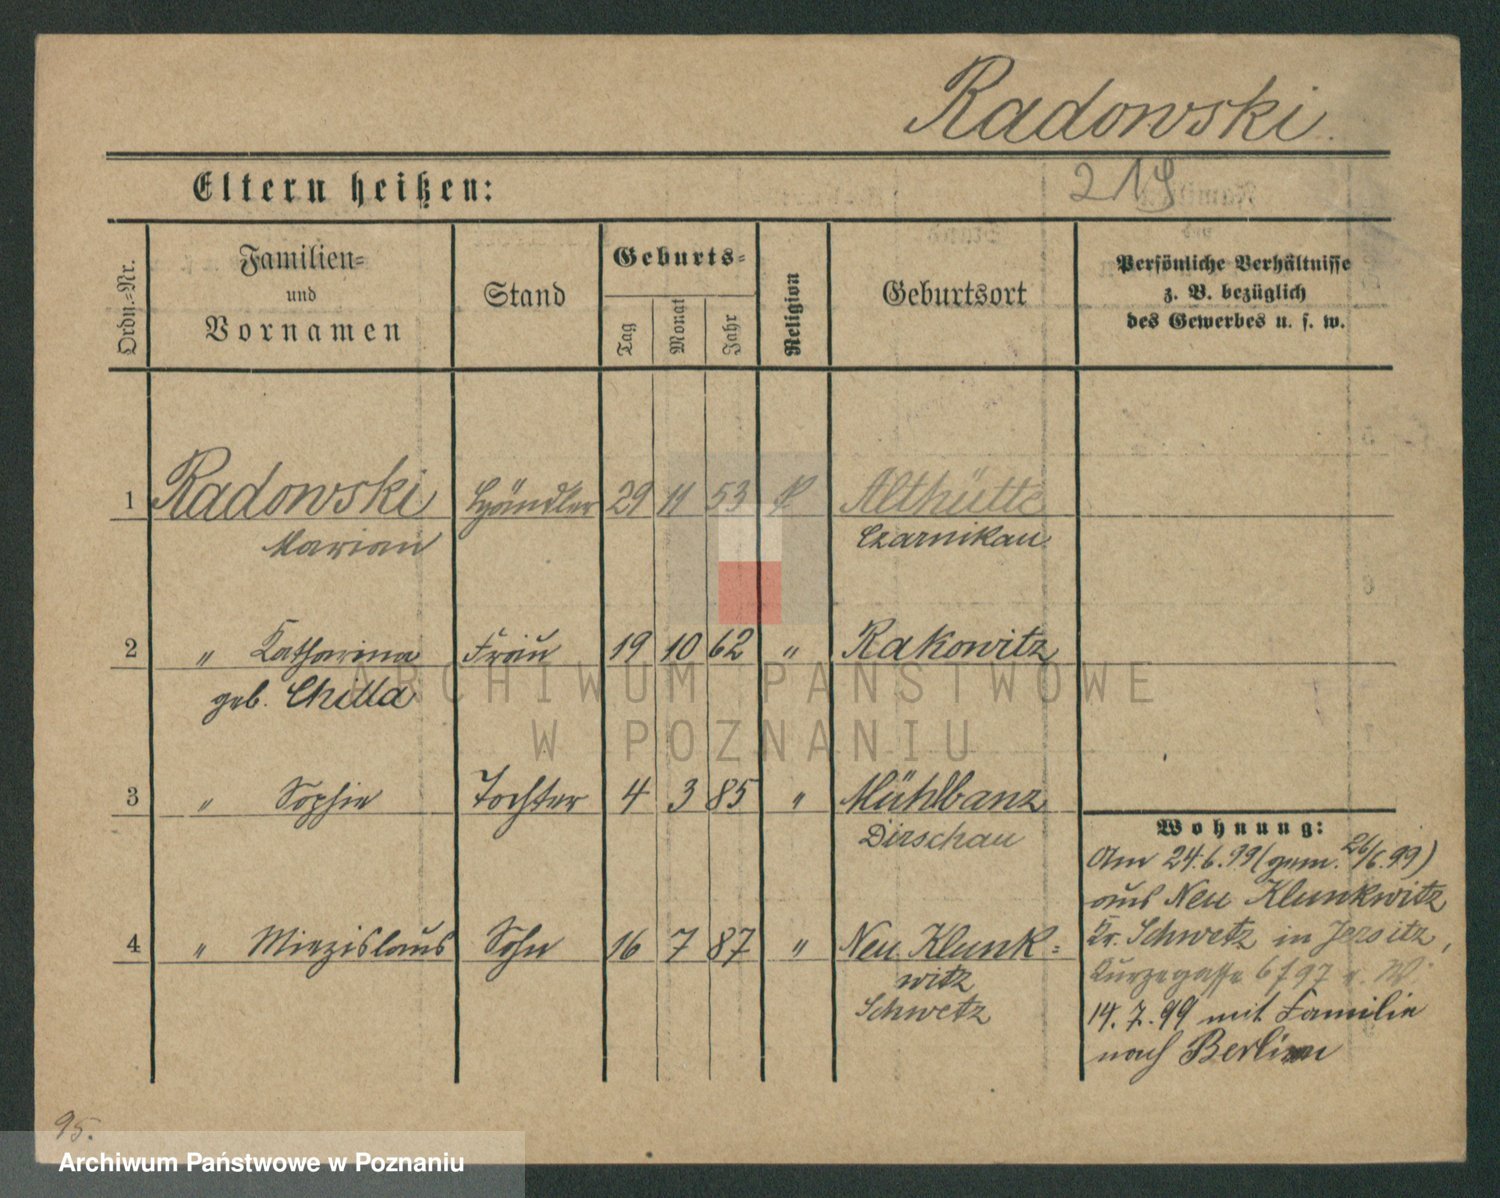 Radowski
219
Eltern heißen:
Ordn.-Nr.
Familien-
und
Vornamen
Stand
Geburts-
Tag
Monat
Jahr
Religion
Geburtsort
Persönliche Verhältnisse
z. B. bezüglich
des Gewerbes u. s. w.
1 Radowski Händler 29 11 53 K Althütte
Marian Czarnikau
2 " Katharina Frau 19 10 62 " Rakowitz
geb. Chilla
3 " Sophie Tochter 4 3 85 " Mühlbanz
Dirschau
4 " Miezislaus Sohn 16 7 87 " Neu Klunk-
witz
Schwetz
Wohnung:
Am 24.6.99 (gem. 26/6.99)
aus Neu Klunkwitz
Kr. Schwetz in Jersitz,
Kurzegasse 6 f 97 v. W.
14.7.99 mit Familie
nach Berlin
95.
ARCHIWUM PAŃSTWOWE
W POZNANIU
Archiwum Państwowe w Poznaniu